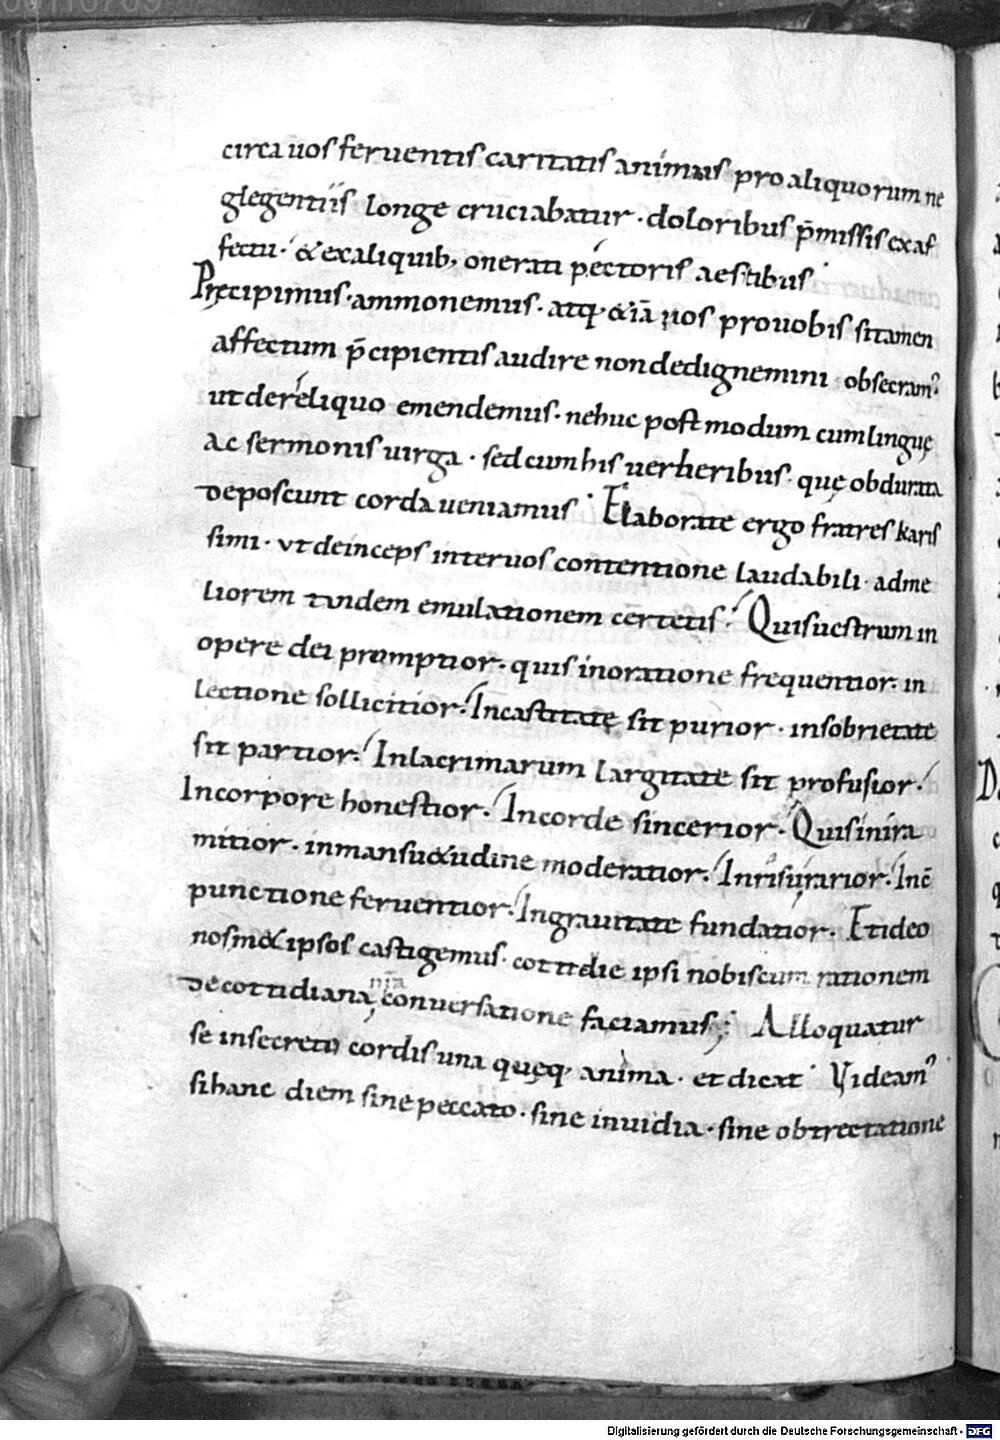 circa uos feruentis caritatis animus pro aliquorum ne
glegentiis longe cruciabatur · doloribus p̄missis ex af
fectu · & ex aliquib; onerati pectoris aestibus ·
Pręcipimus · ammonemus · atq; & iā uos pro uobis si tamen
affectum p̄cipientis audire non dedignemini obsecram᾽
ut de reliquo emendemus · ne huc post modum cum linguę
ac sermonis uirga · sed cum his uerberibus · quę obdurata
deposcunt corda ueniamus · Elaborate ergo fratres karis
simi · ut deinceps inter uos contentione laudabili · ad me
liorem tandem emulationem certetis · Quis uestrum in
opere dei promptior · quis in oratione frequentior · in
lectione sollicitior · In castitatę sit purior · in sobrietate
sit partior · In lacrimarum largitate sit profusior ·
In corpore honestior · In corde sincerior · Quis in ira
mitior · in mansu&udine moderatior · In risu rarior · In cō
punctione feruentior · In grauitate fundatior · Et ideo
nosm&ipsos castigemus · cottidie ipsi nobiscum rationem
de cottidiana nr̄a conuersatione faciamus; Alloquatur
se in secreto cordis una quęq; anima · et dicat · Videam᾽
si hanc diem sine peccato · sine inuidia · sine obtrectatione
Digitalisierung gefördert durch die Deutsche Forschungsgemeinschaft - DFG